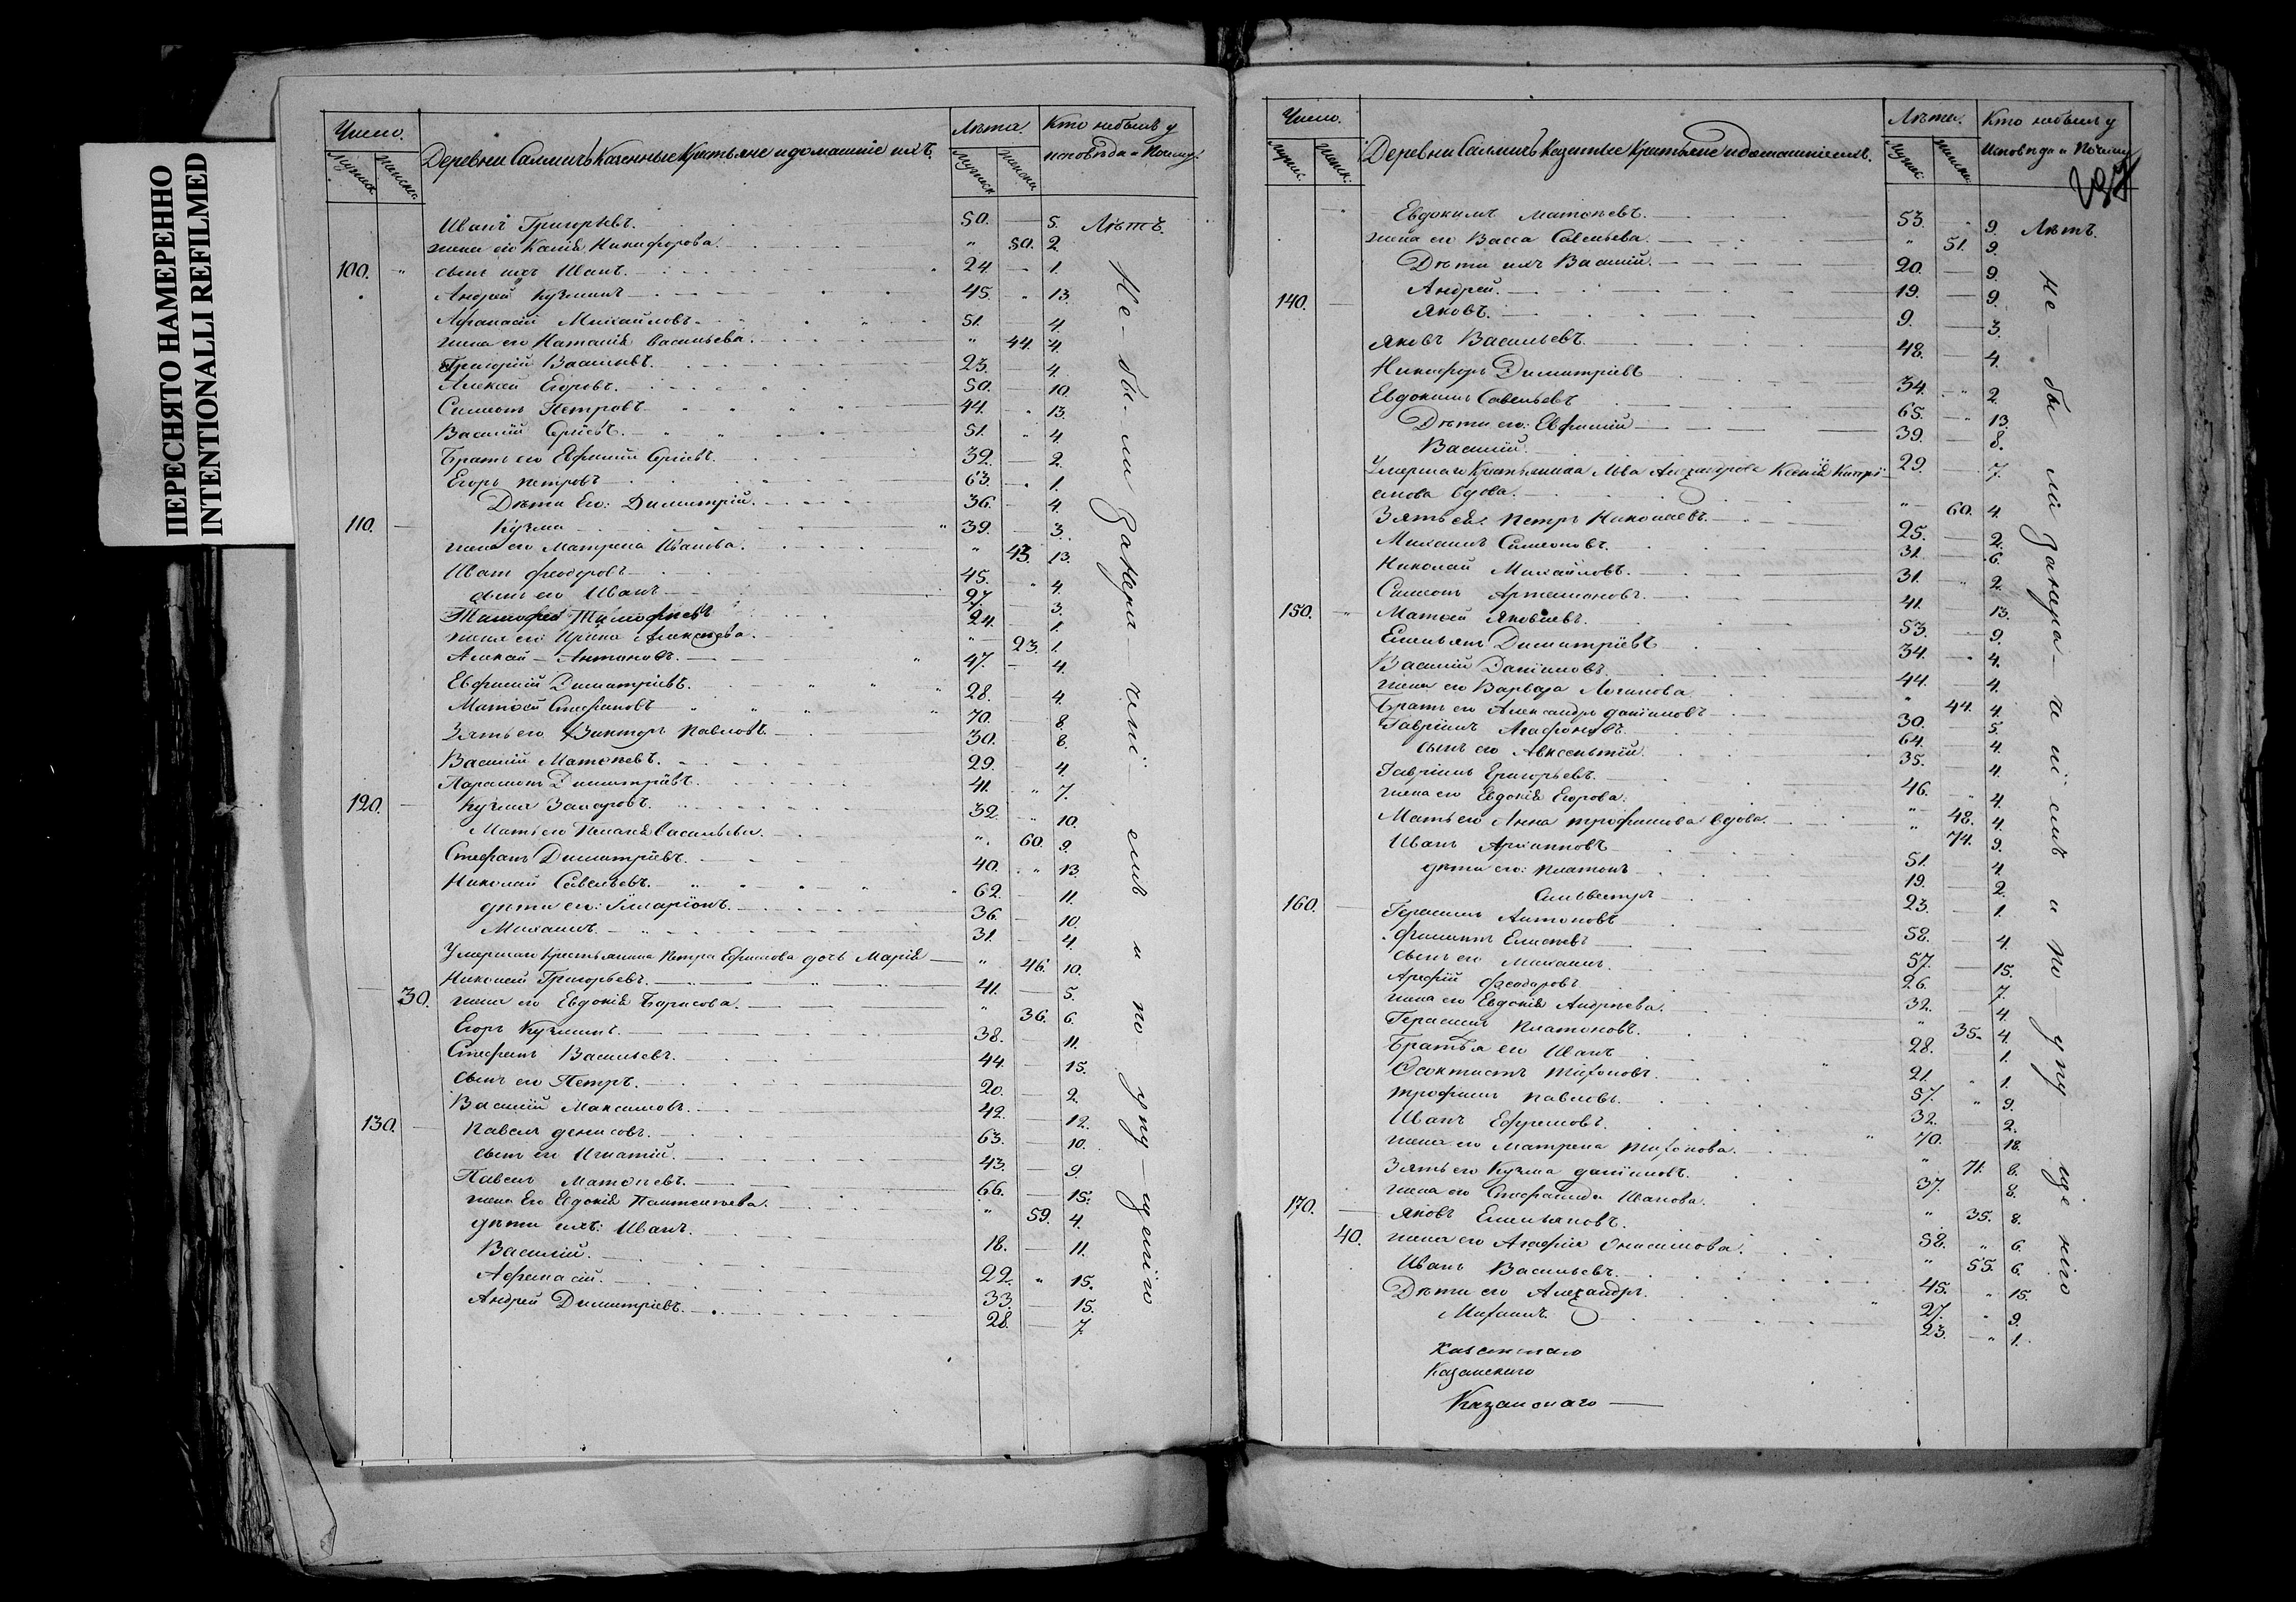 ПЕРЕСНЯТО НАМЕРЕННО
INTENTIONALLI REFILMED
Число.
Лѣта.
Кто небылъ у
исповѣди и Почему.
Деревни Салмишъ Казенные Крестьяне и домашніе ихъ.
Иванъ Григорьевъ. 50. 5. Лѣтъ.
жена его Ксенія Никифорова. " 50. 2.
100. " сынъ ихъ Иванъ. 24 1.
Андрей Кузминъ 45. 13.
Афанасій Михайловъ. 51. 4.
жена его Наталія Васильева. " 44. 4.
Григорій Васильевъ. 23. 4.
Алексѣй Егоровъ. 50. 10.
Симеонъ Петровъ 44. 13.
Василій Сергіевъ. 51. 4.
Братъ его Евфимій Сергіевъ. 32. 2.
Егоръ Петровъ 63. 1.
Дѣти Его: Димитрій. 36. 4.
110. Кузма 39. 3.
жена его Матрена Иванова. " 43. 13.
Иванъ Феодоровъ 45. 4.
сынъ его Иванъ 27. 3.
Тимофей Тимофѣевъ 24. 1.
жена его Ирина Алексѣева. " 23. 1.
Алексѣй Антоновъ. 47. 4.
Евфимій Димитріевъ. 28. 4.
Матѳей Стефановъ 70. 8.
Зять его Викторъ Павловъ. 30. 8.
Василій Матѳѣевъ. 29. 4.
Парамонъ Димитріевъ. 41. 7.
120. Кузма Захаровъ. 32. 10.
Мать его Пелагія Васильева. " 60. 9.
Стефанъ Димитріевъ. 40. 13.
Николай Савельевъ. 62. 11.
дѣти его: Илларіонъ. 36. 10.
Михаилъ. 31. 4.
Умершаго Крестьянина Петра Ефимова дочь Марія " 46. 10.
Николай Григорьевъ. 41. 5.
30. жена его Евдокія Борисова. " 36. 6.
Егоръ Кузминъ. 38. 11.
Стефанъ Васильевъ. 44. 15.
сынъ его Петръ. 20. 2.
Василій Максимовъ. 42. 12.
130. Павелъ Денисовъ. 63. 10.
сынъ его Игнатій. 43. 9.
Павелъ Матѳѣевъ. 66. 15.
жена Его Евдокія Пантелѣева. " 59. 4.
дѣти ихъ: Иванъ. 18. 11.
Василій. 22. 15.
Афанасій. 33. 15.
Андрей Димитріевъ. 28. 7.
Не-бы-ли за нера чені емъ и по упу-щенiю
Число.
Лѣта.
Кто небылъ у
Исповѣди и Почему
237
Деревни Салмишъ Казенные Крестьяне и домашніе ихъ.
Евдокимъ Матѳѣевъ. 53. 9. Лѣтъ.
жена его Васса Савельева. " 51. 9.
Дѣти ихъ Василій. 20. 9.
Андрей. 19. 9.
140. Яковъ. 9. 3.
Яковъ Васильевъ. 48. 4.
Никифоръ Димитріевъ 34. 2.
Евдокимъ Савельевъ 65. 13.
Дѣти его: Евфимій 39. 8.
Василій. 29. 7.
Умершаго Крестьянина Льва Александрова Ксенія Кипрі-
анова вдова. " 60. 4.
Зять ея: Петръ Николаевъ. 25. 2.
Михаилъ Симеоновъ. 31. 6.
Николай Михайловъ. 31. 2.
Симеонъ Артамоновъ. 41. 13.
150. Матѳей Яковлевъ. 53. 9.
Емельянъ Димитріевъ 34. 4.
Василій Даніиловъ 44. 4.
жена его Варвара Логинова. " 44. 4.
Братъ его Александръ Даніиловъ 30. 5.
Гавріилъ Агафоновъ. 64. 4.
сынъ его Авксентій. 35. 4.
Гавріилъ Григорьевъ. 46. 4.
жена его Евдокія Егорова. " 48. 4.
Мать его Анна Трофимова вдова. " 74. 9.
Иванъ Архиповъ 51. 4.
дѣти его: Платонъ 19. 2.
160. Сильвестръ 23. 1.
Герасимъ Антоновъ 58. 4.
Филиппъ Елисѣевъ 57. 15.
сынъ его Михаилъ. 26. 7.
Арефій Феодоровъ 32. 4.
жена его Евдокія Андреева. " 35. 4.
Герасимъ Платоновъ. 28. 1.
Братья его Иванъ 21. 1.
Ѳеоктистъ Тихоновъ. 57. 9.
Трофимъ Павловъ. 32. 2.
Иванъ Ефремовъ. 70. 18.
жена его Матрена Тихонова. " 71. 6.
Зять его Кузма Даніиловъ. 37. 8.
жена его Стефанида Иванова. " 35. 8.
170. Яковъ Емельяновъ. 58. 6.
40. жена его Агафія Онисимова. " 55. 6.
Иванъ Васильевъ. 45. 15.
Дѣти его Александръ. 27. 9.
Михаилъ. 23. 1.
Казанскаго
Казанскаго
не-бы ли за нера-чиіемъ и по упу-щенію